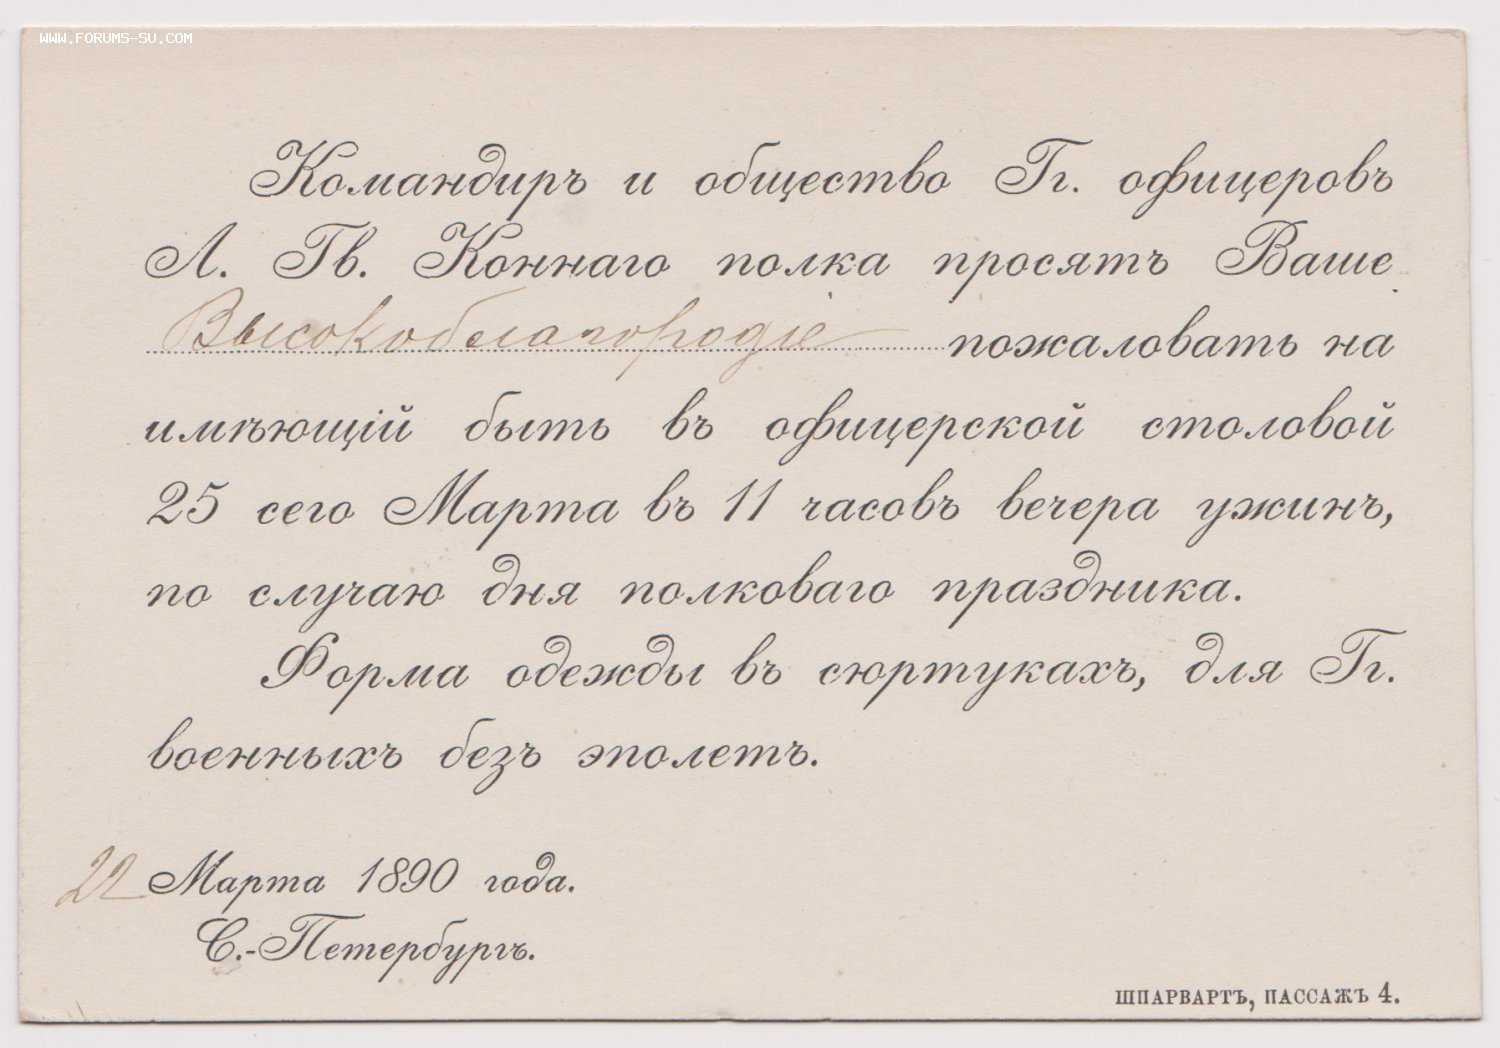 WWW.FORUMS-SU.COM
Командиръ и общество Гг. офицеровъ
Л. Гв. Коннаго полка просятъ Ваше
Высокоблагородіе пожаловать на
имѣющій быть въ офицерской столовой
25 сего Марта въ 11 часовъ вечера ужинъ,
по случаю дня полковаго праздника.
Форма одежды въ сюртукахъ, для Гг.
военныхъ безъ эполетъ.
22 Марта 1890 года.
С.-Петербургъ.
ШПАРВАРТЪ, ПАССАЖЪ 4.